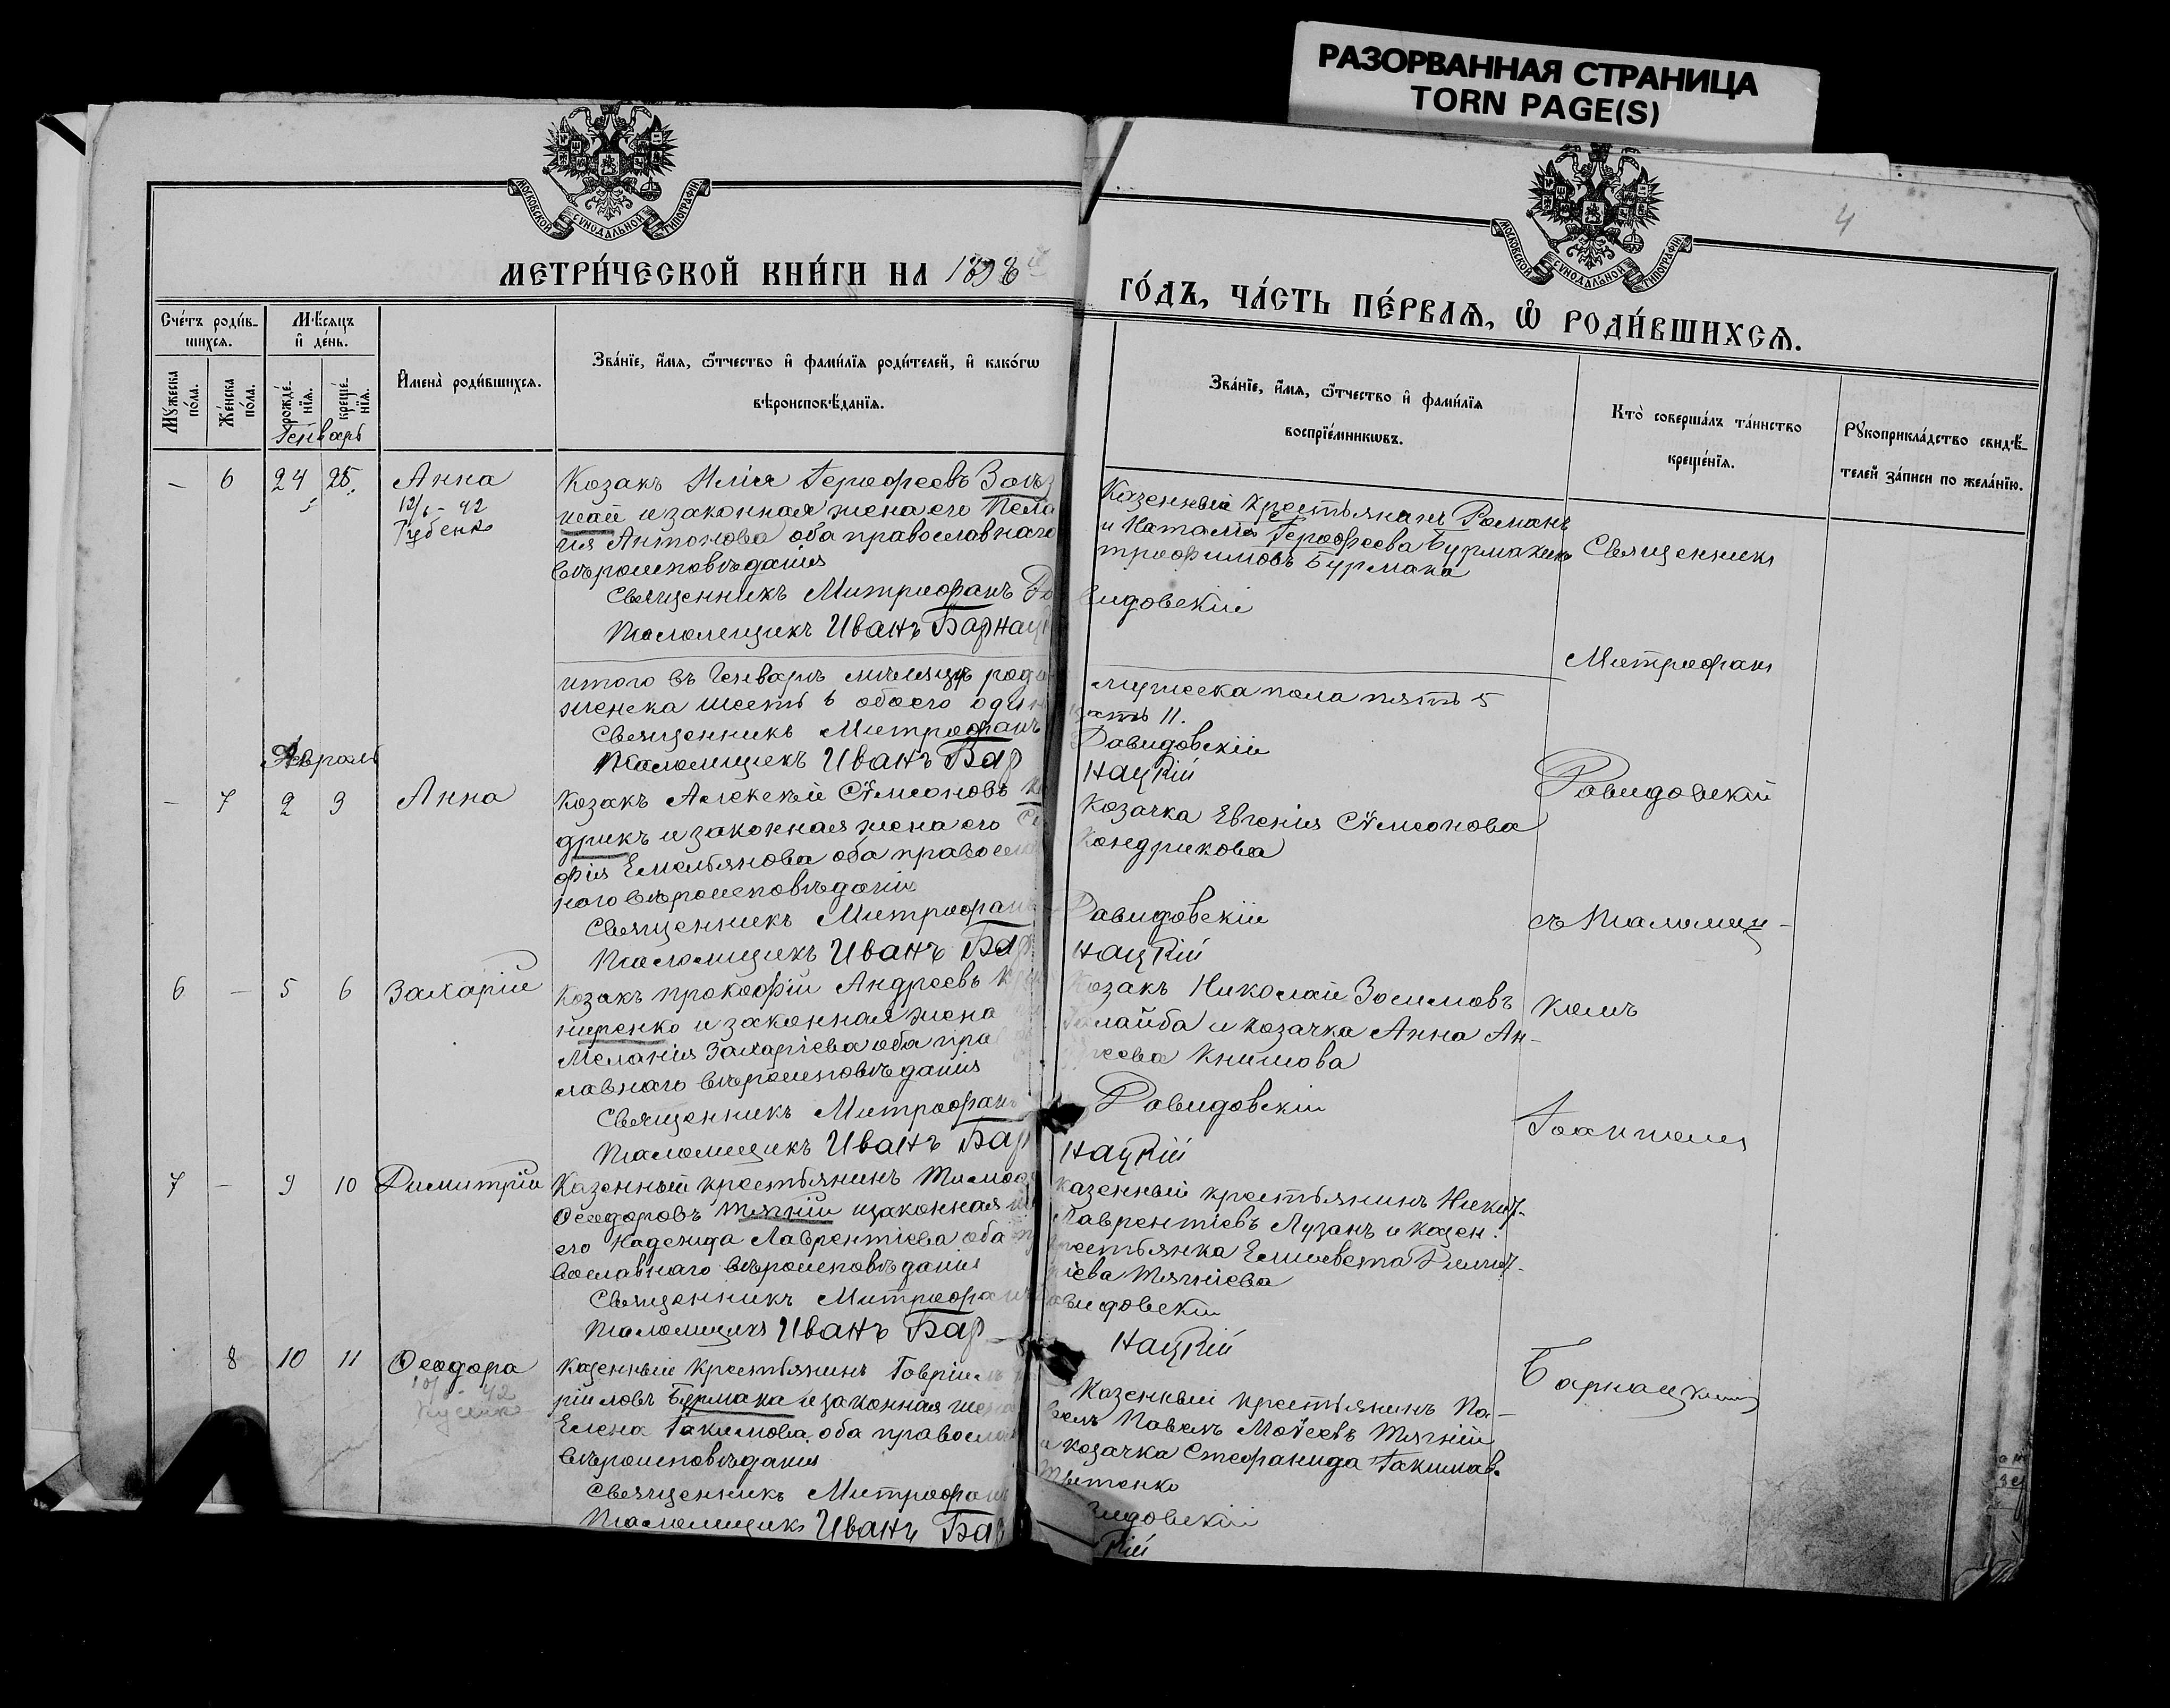 РАЗОРВАННАЯ СТРАНИЦА
TORN PAGE(S)
4
МОСКОВСКОЙ СѴНОДАЛЬНОЙ ТИПОГРАФІИ
МОСКОВСКОЙ СѴНОДАЛЬНОЙ ТИПОГРАФІИ
МЕТРИ́ЧЕСКОЙ КНИ́ГИ НА 1898
ГО́ДЪ, ЧА́СТЬ ПЕ́РВАѦ, Ѡ РОДИ́ВШИХСѦ.
Сче́тъ роди́в-
шихсѧ.
Мꙋ́жеска по́ла.
Же́нска по́ла.
Мѣ́сѧцъ
и҆ де́нь.
рожде́-
нїѧ.
креще́-
нїѧ.
И҆мена̀ роди́вшихсѧ.
Зва́нїе, и҆́мѧ, ѻ҆́тчество и҆ фами́лїѧ роди́телей, и҆ како́гѡ
вѣроисповѣ́данїѧ.
Зва́нїе, и҆́мѧ, ѻ҆́тчество и҆ фами́лїѧ
воспрїе́мникѡвъ.
Кто̀ соверша́лъ та́инство
креще́нїѧ.
Рꙋкоприкла́дство свидѣ́-
телей за́писи по жела́нїю.
Генварь
— 6 24 25 Анна
12/6 - 42
Козакъ Илія Герофеевъ
и законная жена его Пела
гія Антонова оба православнаго
вѣроисповѣданія
Священникъ Митрофанъ
Псаломщикъ Иванъ Барнац
Казенный крестьянинъ Романъ
и Наталія Герофеева
трофимовъ Бурмака
видовскій
Священникъ
Митрофанъ
Давидовскій
съ Псаломщи-
комъ
Іоанномъ
Барнацкимъ
итого въ Генварѣ мѣсяцѣ роди
женска шесть 6 обоего один
Священникъ Митрофанъ
Псаломщикъ Иванъ Бар
мужеска пола пять 5
цать 11.
Давидовскій
нацкій
Февраль
— 7 2 3 Анна
Козакъ Алексѣй Сѵмеоновъ
дрикъ и законная жена его
фія Емельянова оба правосла
наго вѣроисповѣданія
Священникъ Митрофанъ
Псаломщикъ Иванъ Бар
Козачка Евгенія Сѵмеонова
Кондрикова
Давидовскій
нацкій
6 — 5 6 Захарій
Козакъ Прокофій Андреевъ
ниренко и законная жена
Меланія Захаріева оба пра
славнаго вѣроисповѣданія
Священникъ Митрофанъ
Псаломщикъ Иванъ Бар
Козакъ Николай Зосимовъ
Галайба и козачка Анна Ан-
дреева Книшова
Давидовскій
нацкій
7 — 9 10 Димитрій
Казенный крестьянинъ Тимоф
Ѳеодоровъ Тягній и законная
его Надежда Лаврентіева оба
вославнаго вѣроисповѣданія
Священникъ Митрофанъ
Псаломщикъ Иванъ Бар
казенный крестьянинъ Никит.
Лаврентіевъ Лузанъ и казен.
крестьянка Елисавета Димит-
ріева Тягніева
видовскій
нацкій
8 10 11 Ѳеодора
Казенный крестьянинъ Гавріилъ
ріиловъ Бурмака и законная жена
Елена Іакимова оба правосла
вѣроисповѣданія
Священникъ Митрофанъ
Псаломщикъ Иванъ Бар
Казенный крестьянинъ Па-
велъ Павелъ Моѵсеевъ Тягній
и козачка Стефанида Іакимов.
видовскій
кій